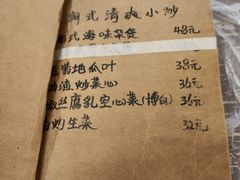 式清爽小炒
式海味杂煲 48元
地瓜叶 38元
渣炒菜心 36元
丝腐乳空心菜(博白) 36元
炒生菜 32元